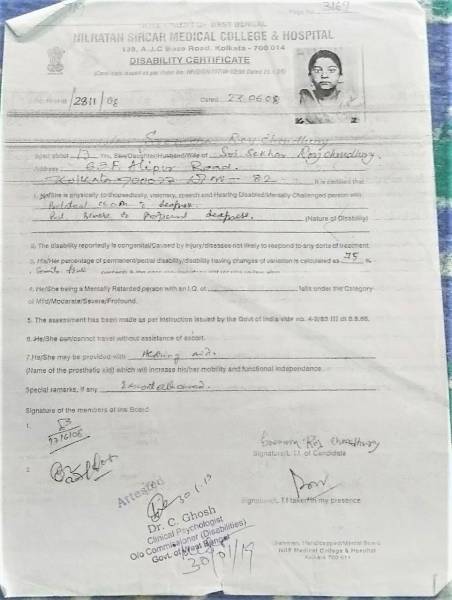 Page No. 3167
GOVERNMENT OF WEST BENGAL
NILRATAN SIRCAR MEDICAL COLLEGE & HOSPITAL
138, A.J.C Bose Road, Kolkata - 700 014
DISABILITY CERTIFICATE
2811/08
Dated 23.06.08
Roy Chowdhury
Aged about 13 Yrs. Son/Daughter/Husband/Wife of Sri Sekhar Roy Chowdhury.
Address 63F, Alipur Road.
Kolkata-700027 82 It is certified that
1. He/She is physically/orthopaedically, visionary, speech and Hearing Disabled/Mentally Challenged person with
Bilateral
severe to profound deafness. (Nature of Disability)
2. The disability reportedly is congenital/Caused by injury/diseases not likely to respond to any sorts of treatment.
3. His/Her percentage of permanent/partial disability/disability having changes of variation is calculated as 75 %
4. He/She being a Mentally Retarded person with an I.Q. of falls under the Category
of Mild/Moderate/Severe/Profound.
5. The assessment has been made as per instruction issued by the Govt of India vide no.
6. He/She can/cannot travel without assistance of escort.
7. He/She may be provided with Hearing aid.
(Name of the prosthetic aid) which will increase his/her mobility and functional independence.
Special remarks, if any
Signature of the members of the Board
1.
23/6/08
Roy Chowdhury
Signature/L.T.I. of Candidate
2.
Attested
30/1/19
Signature/L.T.I taken in my presence
Dr. C. Ghosh
Clinical Psychologist
O/o Commissioner (Disabilities)
Govt. of West Bengal
30/01/19
Chairman, Handicapped/Medical Board
NRS Medical College & Hospital
Kolkata 700 014